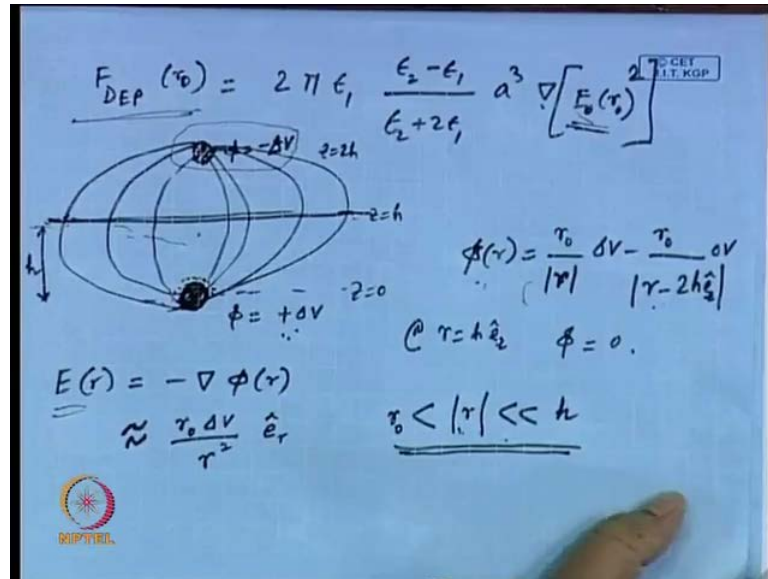 F_DEP (r₀) = 2 π ε₁ (ε₂ - ε₁)/(ε₂ + 2ε₁) a³ ∇[E₀(r₀)²]
© CET
I.I.T. KGP
φ = -ΔV z=2h
z=h
h
φ(r) = r₀/|r| ΔV - r₀/|r - 2hê_z| ΔV
z=0
φ = +ΔV
@ r = hê_z φ = 0.
E(r) = - ∇ φ(r)
≈ r₀ΔV/r² ê_r
r₀ < |r| << h
NPTEL